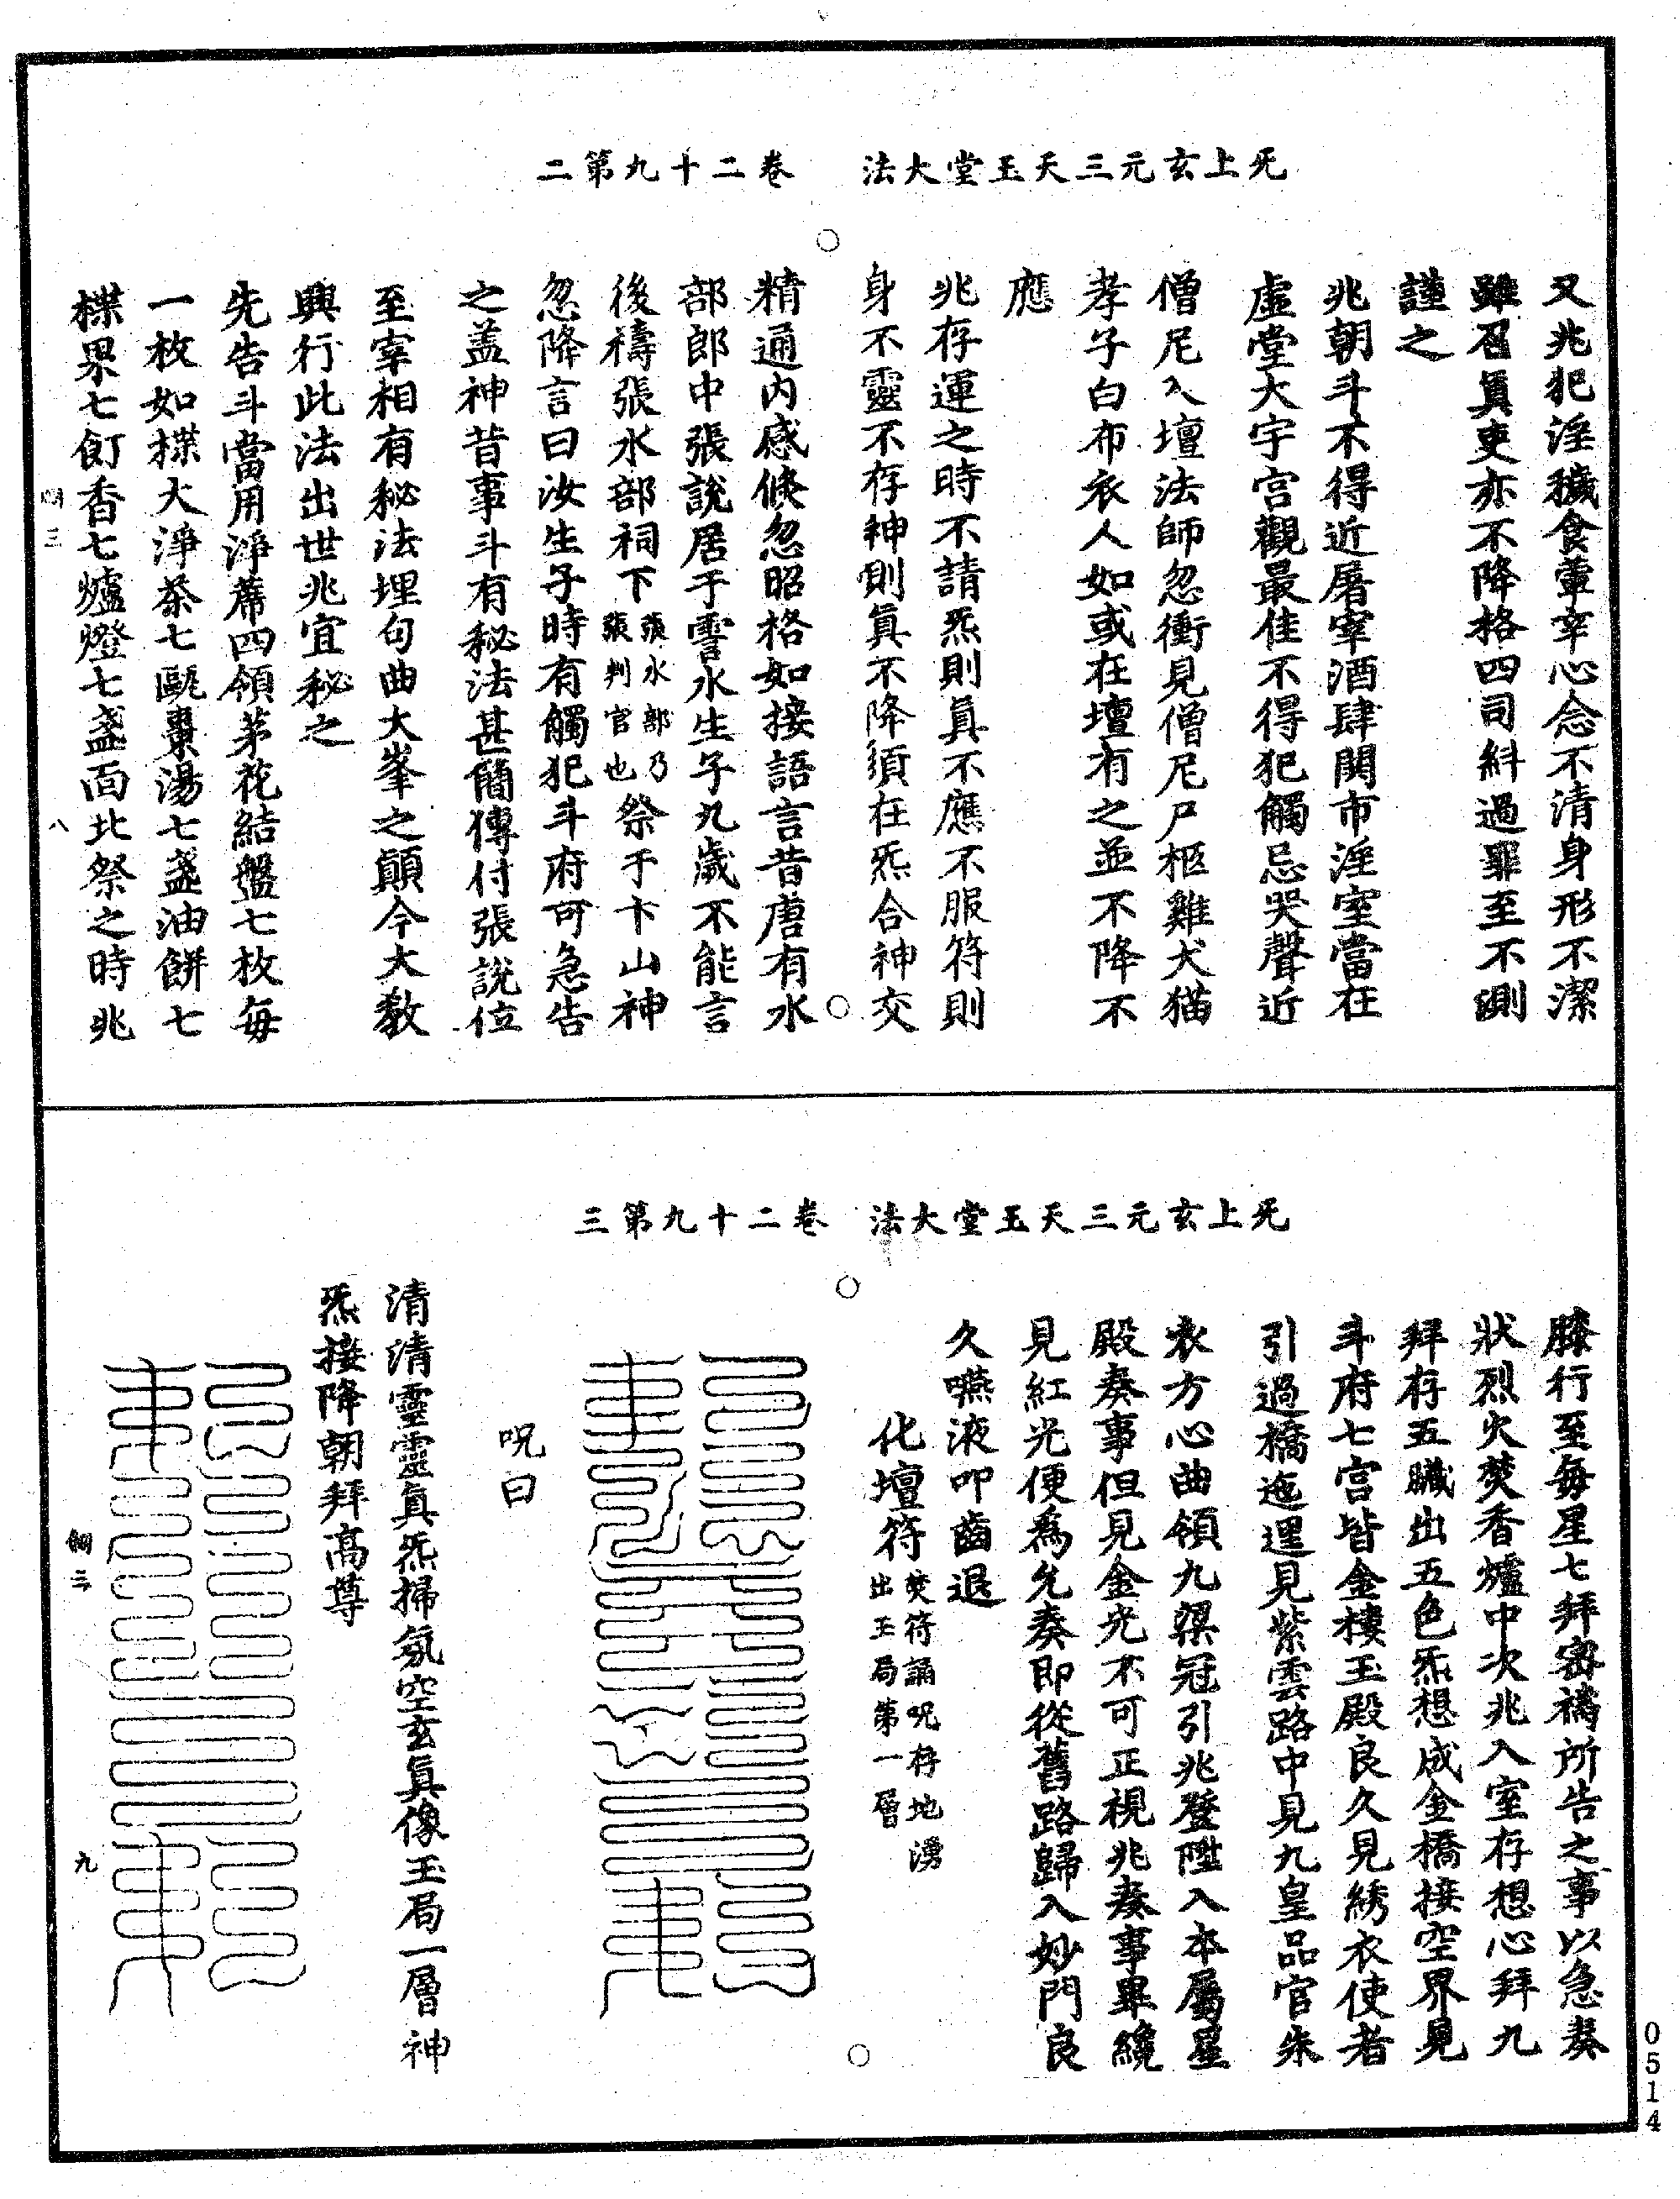 二第九十二卷　法大堂玉天三元玄上旡
又兆犯淫穢食葷辛心念不清身形不潔
雖召真吏亦不降格四司糾過罪至不測
謹之
兆朝斗不得近屠宰酒肆閙市淫室當在
虛堂大宇宮觀最佳不得犯觸忌哭聲近
僧尼入壇法師忽衝見僧尼尸柩雞犬猫
孝子白布衣人如或在壇有之並不降不
應
兆存運之時不請炁則真不應不服符則
身不靈不存神則真不降須在炁合神交
精通內感倏忽昭格如接語言昔唐有水
部郎中張說居于霅水生子九歲不能言
後禱張水部祠下張水部乃張判官也祭于卞山神
忽降言曰汝生子時有觸犯斗府可急告
之盖神昔事斗有秘法甚簡傳付張說位
至宰相有秘法埋句曲大峯之顛今大教
興行此法出世兆宜秘之
先告斗當用淨蓆四領茅花結盤七枚每
一枚如楪大淨茶七甌棗湯七盞油餅七
楪果七飣香七爐燈七盞面北祭之時兆
八
三第九十二卷　法大堂玉天三元玄上旡
膝行至每星七拜密禱所告之事以急奏
狀烈火焚香爐中次兆入室存想心拜九
拜存五臟出五色炁想成金橋接空界見
斗府七宮皆金樓玉殿良久見綉衣使者
引過橋迤邐見紫雲路中見九皇品官朱
衣方心曲領九梁冠引兆登陞入本屬星
殿奏事但見金光不可正視兆奏事畢纔
見紅光便為允奏即從舊路歸入妙門良
久嚥液叩齒退
化壇符焚符誦呪存地湧出玉局第一層
呪曰
清清靈靈真炁掃氛空玄真像玉局一層神
炁接降朝拜高尊
九
0514